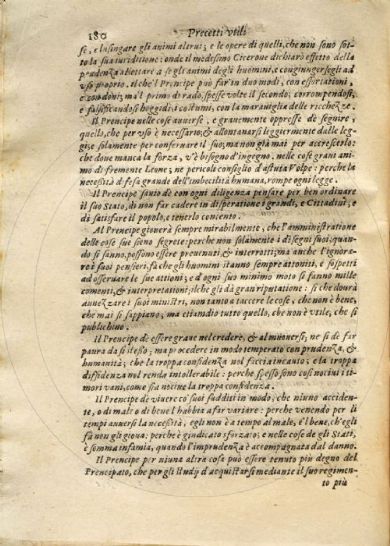 180 Precetti vtili
se, e lusingare gli animi altrui; e le opere di quelli, che non sono sot-
to la sua iuriditione: onde il medesimo Cicerone dichiarò effetto della
prudenza allettare a se gli animi degli huomini, e congiungerseli ad
vso proprio, il che'l Prencipe può far in duo modi, con essortationi,
e con doni; ma'l primo di rado, spesse volte il secondo; corrompendosi,
e falsificandosi hoggidì i costumi, con la marauiglia delle ricchezze.
Il Prencipe nelle cose auuerse, e grauemente oppresse dè seguire,
quello, che per vso è necessario; & allontanarsi leggiermente dalle leg-
gi; e solamente per conseruare il suo; ma non già mai per accrescerlo:
che doue manca la forza, v'è bisogno d'ingegno, nelle cose grandi ani-
mo di fremente Leone; ne pericoli consiglio d'astuta Volpe: perche la
necessità difesa grande dell'imbecilità humana, rompe ogni legge.
Il Prencipe studij con ogni diligenza pensare per ben ordinare
il suo Stato, di non far cadere in disperatione i grandi, e Cittadini, e
di satisfare il popolo, e tenerlo contento.
Al Prencipe giouerà sempre mirabilmente, che l'amministratione
delle cose sue sieno segrete: perche non solamente i disegni suoi, quan-
do si sanno, possono essere preuenuti, & interrotti; ma anche l'ignor-
rè i suoi pensieri, fà che gli huomini stanno sempre attoniti, e sospetti
ad osseruare le sue attioni; e ad ogni suo minimo moto si fanno mille
comenti, & interpretationi; il che gli dà gran riputatione: sì che dourà
auuezzare i suoi ministri, non tanto a taccere le cose, che non è bene,
che mai si sappiano; ma etiandio tutto quello, che non è vtile, che si
publichino.
Il Prencipe dè essere graue nel credere, & al muouersi; ne si dè far
paura da sì stesso; ma procedere in modo temperato con prudenza, &
humanità; che la troppa confidenza nol faccia incauto: e la troppa
diffidenza nol renda intollerabile: perche spesso sono così nociui i ti-
mori vani, come sia nociue la troppa confidenza.
Il Prencipe dè viuere co' suoi sudditi in modo, che niuno acciden-
te, o di male o di bene l'habbia a far variare: perche venendo per li
tempi auuersi la necessità, egli non è a tempo al male, e'l bene, ch'egli
fà non gli gioua: perche è giudicato sforzato; e nelle cose de gli Stati,
è somma infamia, quando l'imprudenza è accompagnata dal danno.
Il Prencipe per niuna altra cosa può essere tenuto più degno del
Prencipato, che per gli studij d'acquistarsi mediante il suo regimen-
to più